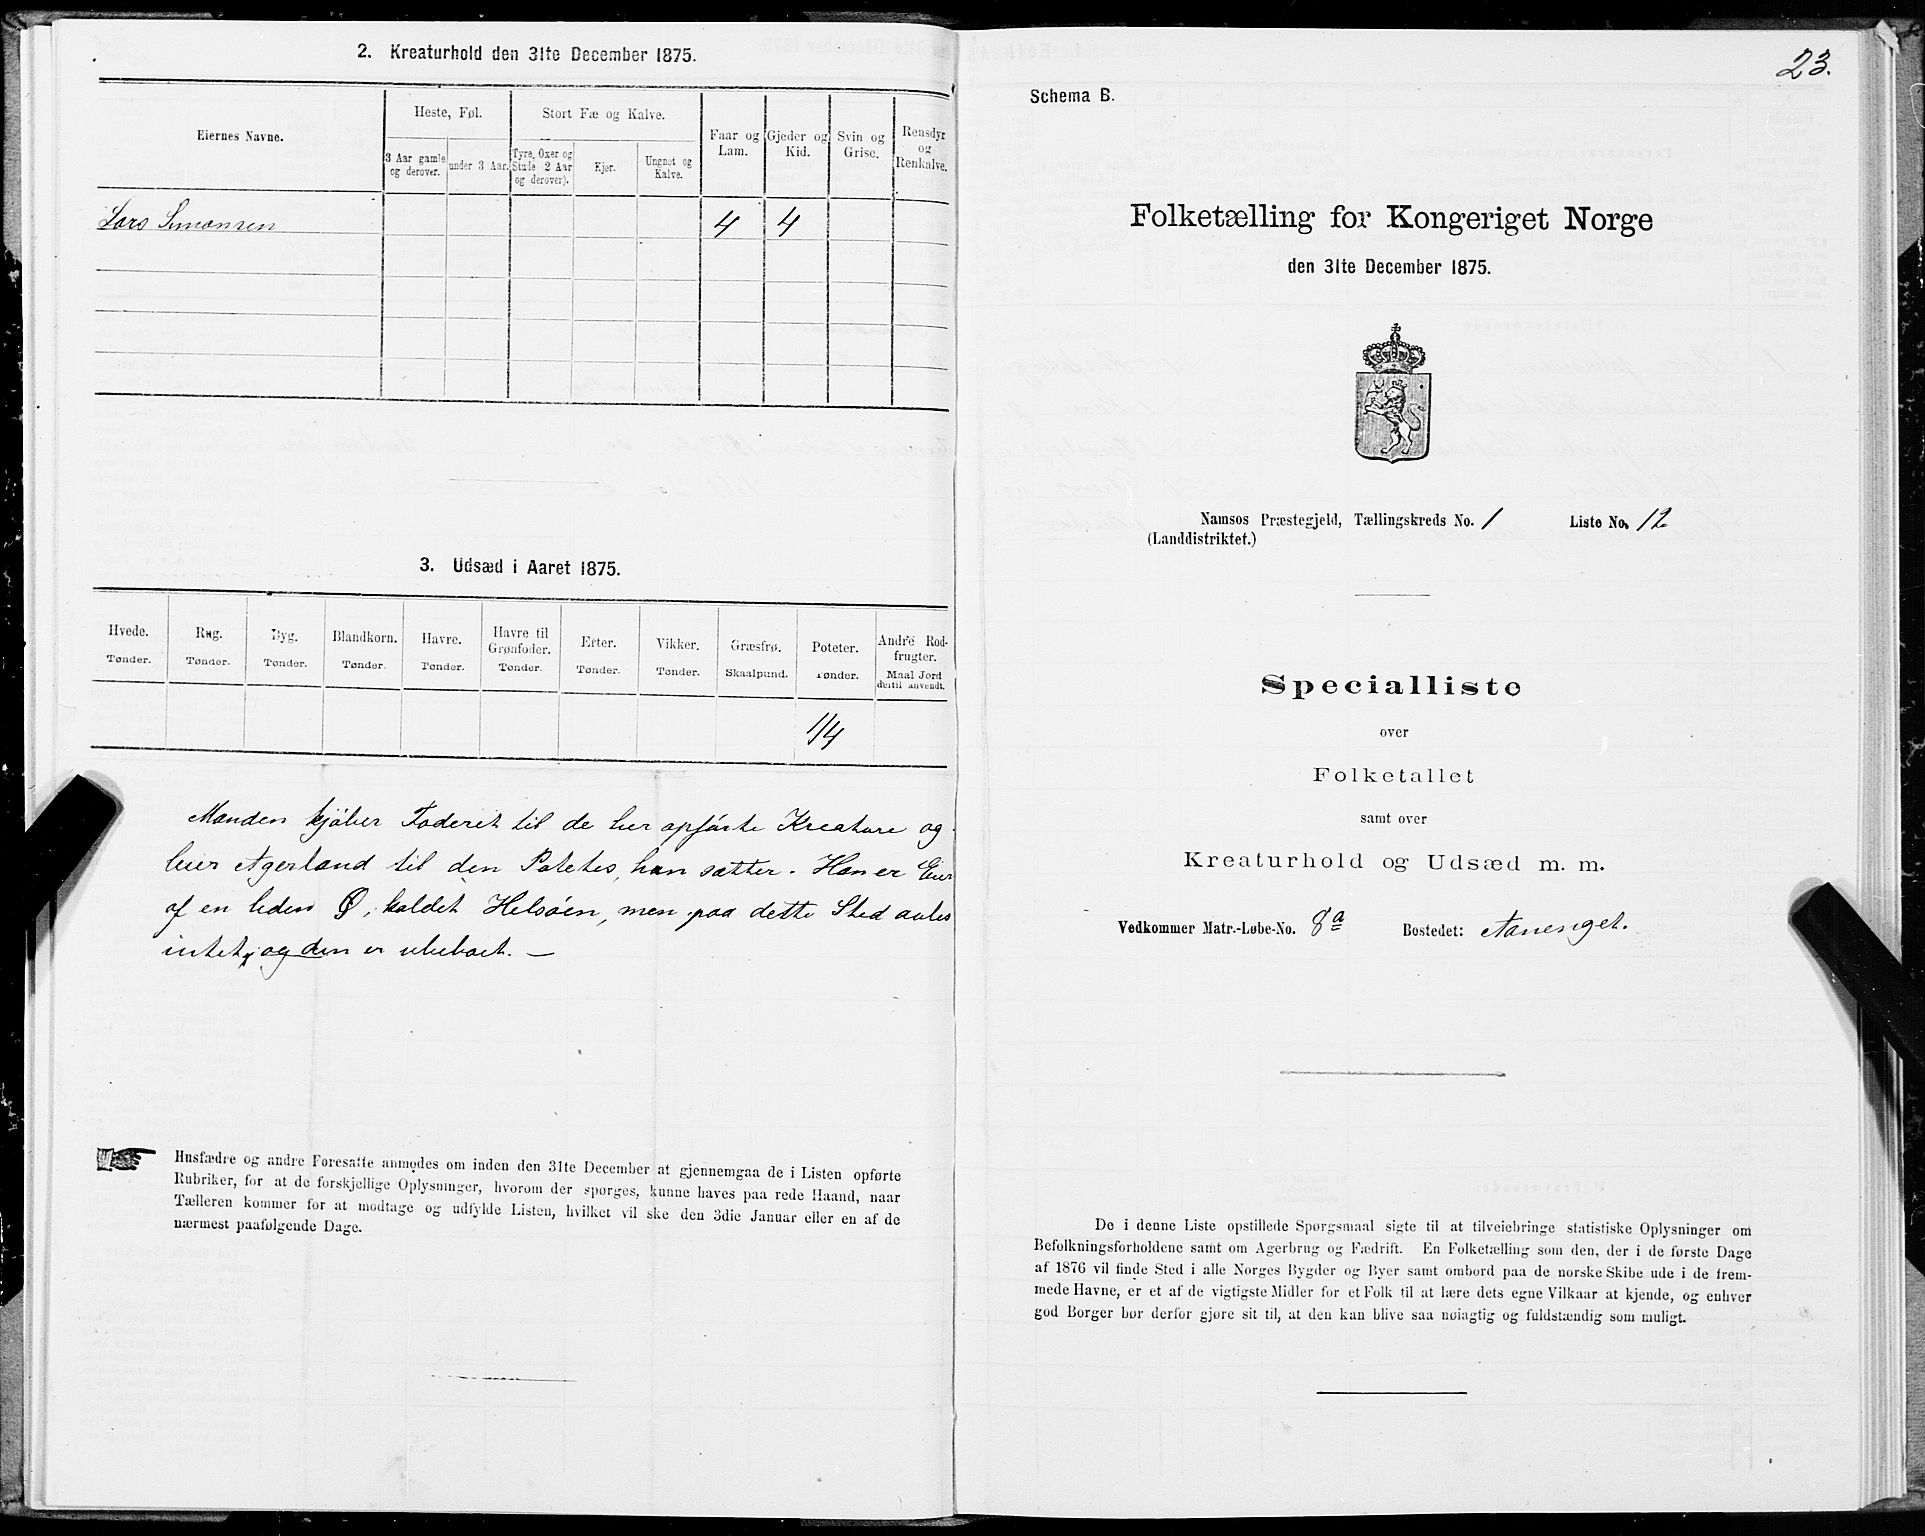 2. Kreaturhold den 31te December 1875.
Eiernes Navne.
Heste, Føl.
Stort Fæ og Kalve.
Faar og
Lam.
Gjeder og
Kid.
Svin og
Grise.
Rensdyr
og
Renkalve.
3 Aar gamle
og derover.
under 3 Aar.
Tyre, Oxer og
Stude (2 Aar
og derover).
Kjør.
Ungnøt og
Kalve.
Lars Simonsen 4 4
3. Udsæd i Aaret 1875.
Hvede. Rug. Byg. Blandkorn. Havre. Havre til
Grønfoder. Erter. Vikker. Græsfrø. Poteter. Andre Rod-
frugter.
Tønder. Tønder. Tønder. Tønder. Tønder. Tønder. Tønder. Tønder. Skaalpund. Tønder. Maal Jord
dertil anvendt.
1/4
Manden kjøber Foderet til de her opførte Kreature og
leier Agerland til den Potetes, han sætter. Han er Eier
af en liden Ø, kaldet Helsøen, men paa dette Sted avles
intet, og den er ubeboet. —
Husfædre og andre Foresatte anmodes om inden den 31te December at gjennemgaa de i Listen opførte
Rubriker, for at de forskjellige Oplysninger, hvorom der spørges, kunne haves paa rede Haand, naar
Tælleren kommer for at modtage og udfylde Listen, hvilket vil ske den 3die Januar eller en af de
nærmest paafølgende Dage.
23.
Schema B.
Folketælling for Kongeriget Norge
den 31te December 1875.
Namsos Præstegjeld, Tællingskreds No. 1 Liste No. 12
(Landdistriktet.)
Specialliste
over
Folketallet
samt over
Kreaturhold og Udsæd m. m.
Vedkommer Matr.-Løbe-No. 8a Bostedet: Aanenget.
De i denne Liste opstillede Spørgsmaal sigte til at tilveiebringe statistiske Oplysninger om
Befolkningsforholdene samt om Agerbrug og Fædrift. En Folketælling som den, der i de første Dage
af 1876 vil finde Sted i alle Norges Bygder og Byer samt ombord paa de norske Skibe ude i de frem-
mede Havne, er et af de vigtigste Midler for et Folk til at lære dets egne Vilkaar at kjende, og enhver
god Borger bør derfor gjøre sit til, at den kan blive saa nøiagtig og fuldstændig som muligt.